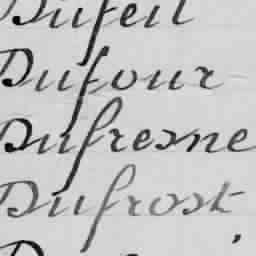 Dufeil
Dufour
Dufresne
Dufrost